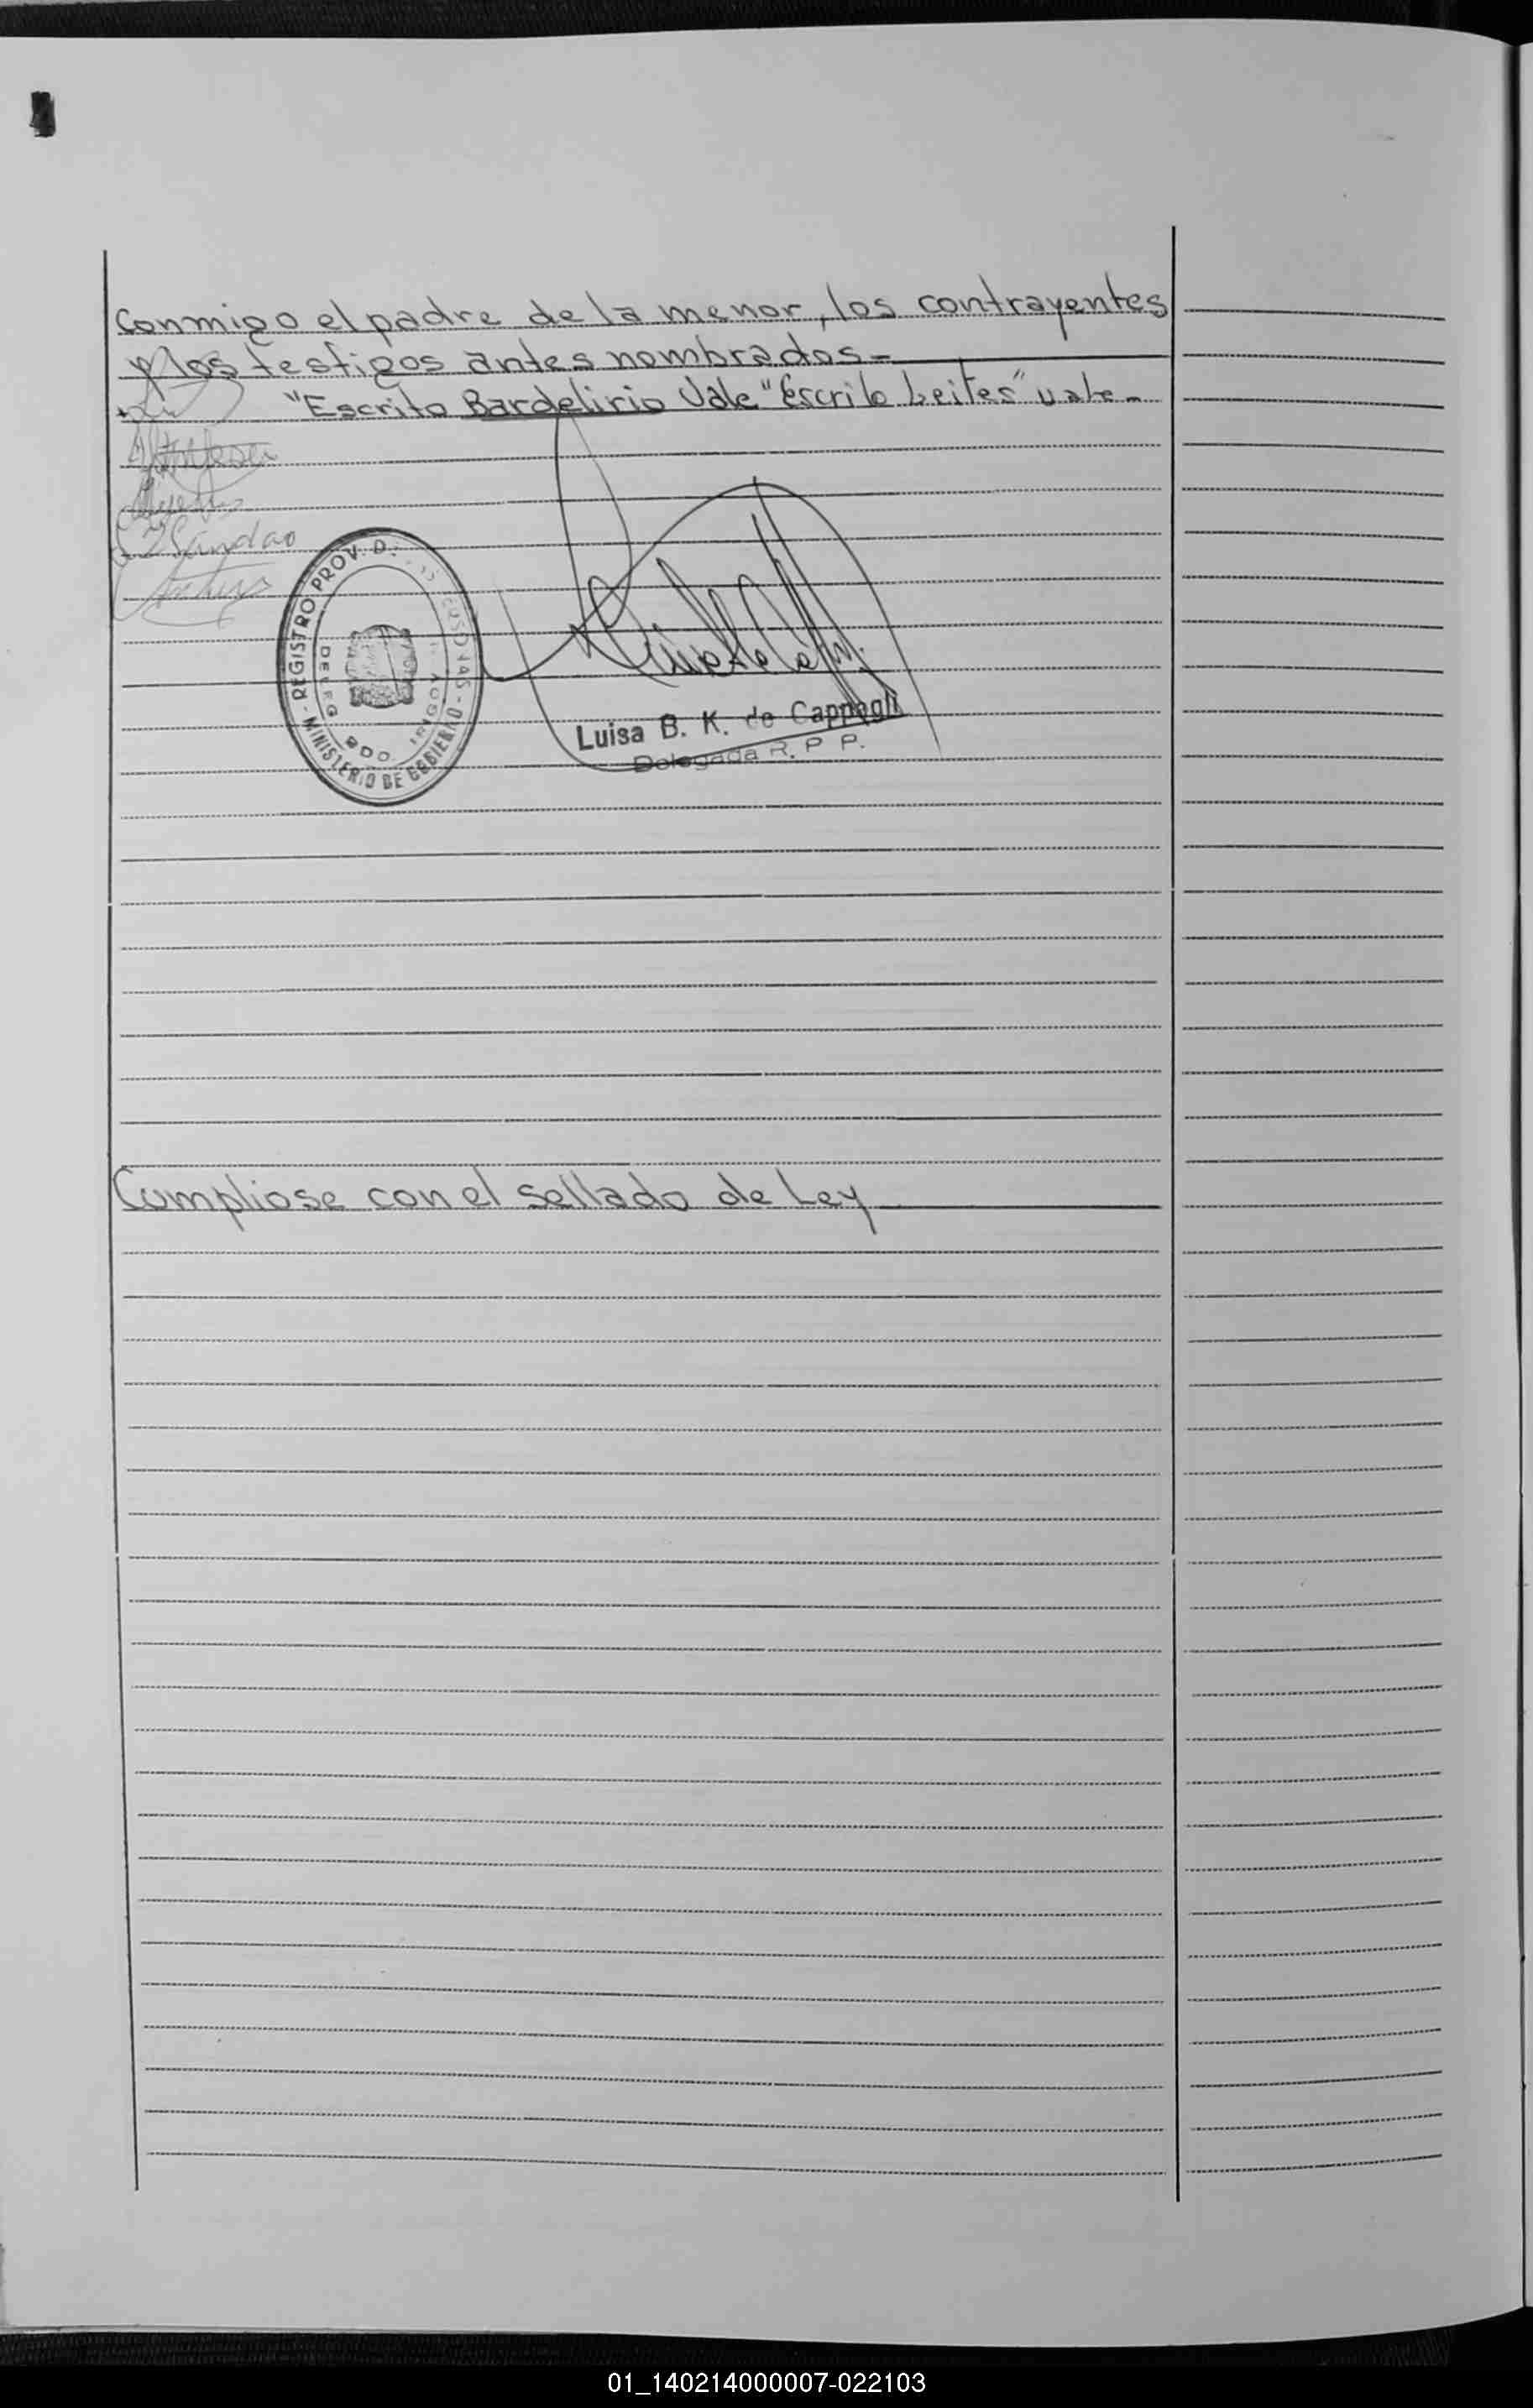 Conmigo el padre de la menor, los contrayentes
y los testigos antes nombrados-
"Escrito Bardelirio Vale "Escrito Leites" vale-
Sandao
REGISTRO PROV. D
MINISTERIO DE GOBIERNO
DELEG
Luisa B. K. de Cappagli
Delegada R. P P.
Cumpliose con el sellado de Ley
01_140214000007-022103